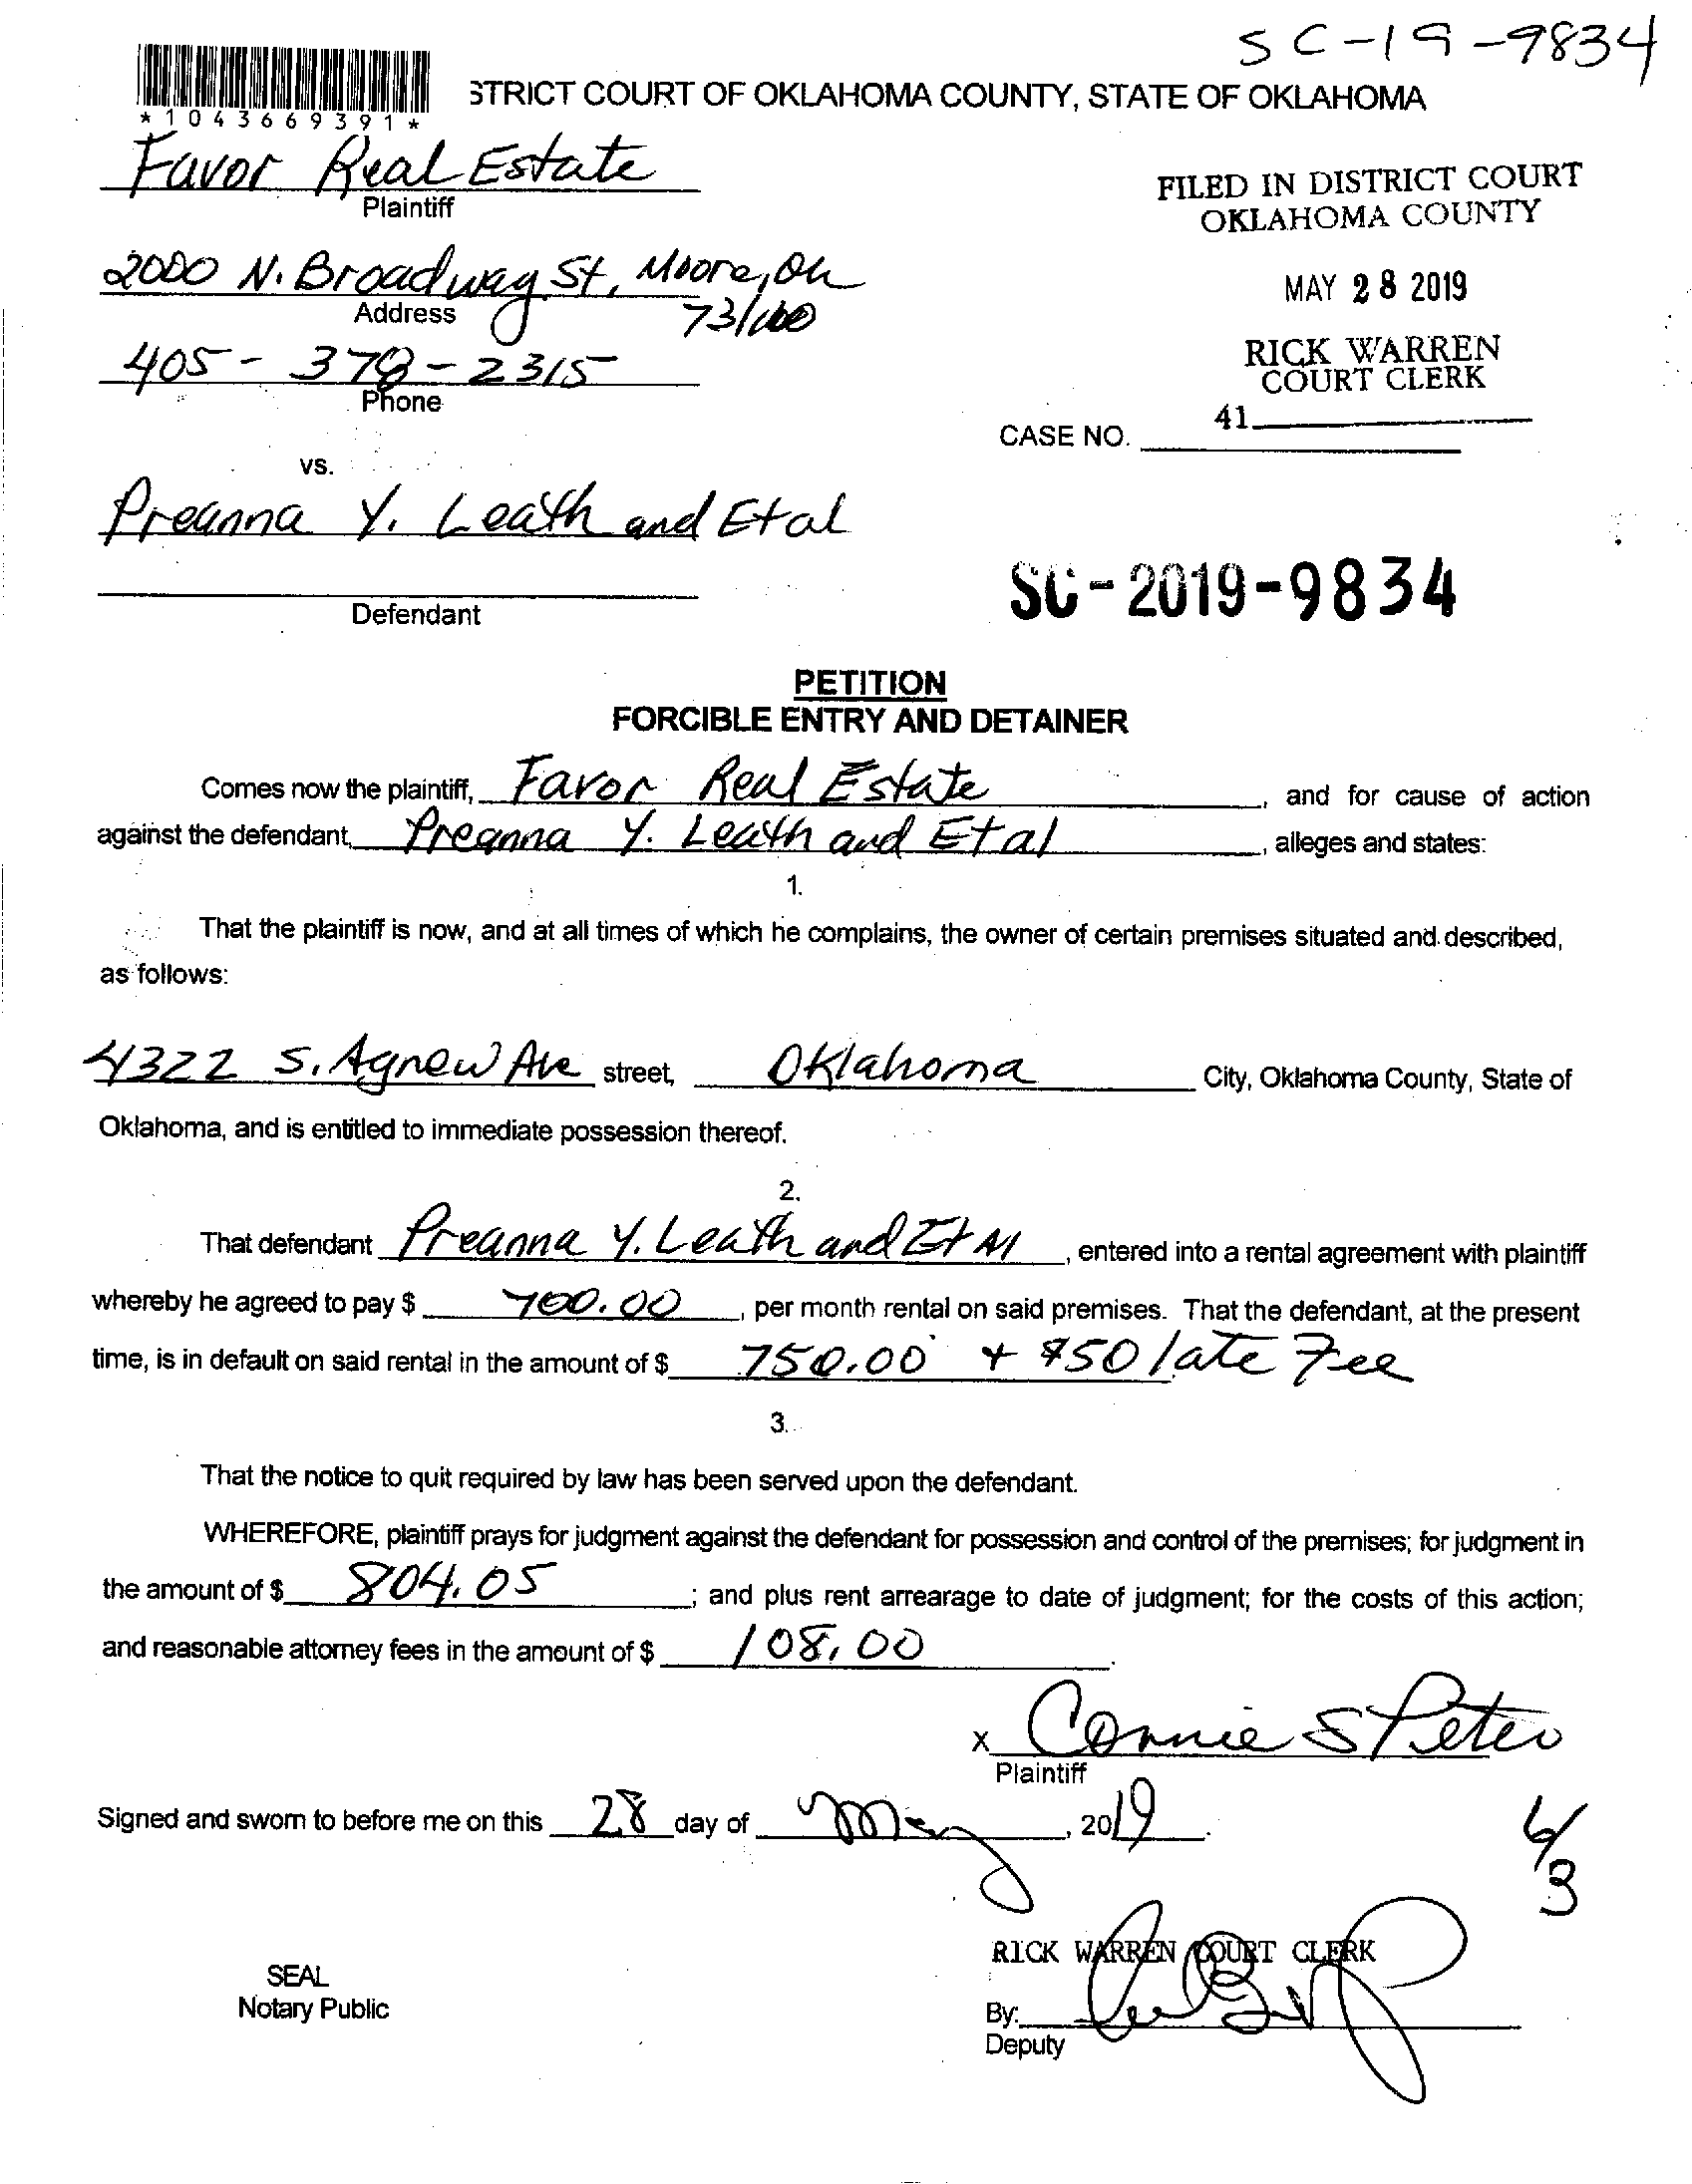 SC-19-9834
STRICT COURT OF OKLAHOMA COUNTY, STATE OF OKLAHOMA
*1043669391*
Favor Real Estate
Plaintiff
FILED IN DISTRICT COURT
OKLAHOMA COUNTY
2000 N. Broadway St, Moore, Ok
Address
73160
MAY 28 2019
405-378-2315
Phone
RICK WARREN
COURT CLERK
41
CASE NO.
vs.
Preanna Y. Leath and Etal
SC-2019-9834
Defendant
PETITION
FORCIBLE ENTRY AND DETAINER
Comes now the plaintiff, Favor Real Estate, and for cause of action
against the defendant, Preanna Y. Leath and Etal, alleges and states:
1.
That the plaintiff is now, and at all times of which he complains, the owner of certain premises situated and described,
as follows:
4322 S. Agnew Ave street, Oklahoma City, Oklahoma County, State of
Oklahoma, and is entitled to immediate possession thereof.
2.
That defendant Preanna Y. Leath and Et Al, entered into a rental agreement with plaintiff
whereby he agreed to pay $ 700.00, per month rental on said premises. That the defendant, at the present
time, is in default on said rental in the amount of $ 750.00 + $50 late Fee
3.
That the notice to quit required by law has been served upon the defendant.
WHEREFORE, plaintiff prays for judgment against the defendant for possession and control of the premises; for judgment in
the amount of $ 804.05; and plus rent arrearage to date of judgment; for the costs of this action;
and reasonable attorney fees in the amount of $ 108.00.
x Connie S Peter
Plaintiff
Signed and sworn to before me on this 28 day of May, 2019.
6/3
RICK WARREN COURT CLERK
SEAL
Notary Public
By:
Deputy